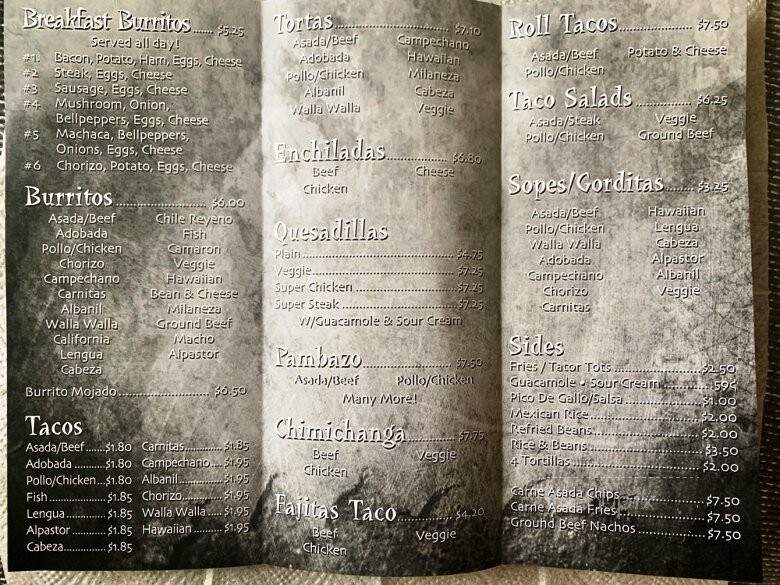 Breakfast Burritos ...... $5.25
Served all day!
#1. Bacon, Potato, Ham, Eggs, Cheese
#2 Steak, Eggs, Cheese
#3 Sausage, Eggs, Cheese
#4 Mushroom, Onion,
Bellpeppers, Eggs, Cheese
#5 Machaca, Bellpeppers,
Onions, Eggs, Cheese
#6 Chorizo, Potato, Eggs, Cheese
Burritos ...................... $6.00
Asada/Beef Chile Reyeno
Adobada Fish
Pollo/Chicken Camaron
Chorizo Veggie
Campechano Hawaiian
Carnitas Bean & Cheese
Albanil Milaneza
Walla Walla Ground Beef
California Macho
Lengua Alpastor
Cabeza
Burrito Mojado...................... $6.50
Tacos
Asada/Beef.....$1.80 Carnitas..........$1.85
Adobada ........$1.80 Campechano....$1.95
Pollo/Chicken...$1.80 Albanil............$1.95
Fish................$1.85 Chorizo...........$1.95
Lengua...........$1.85 Walla Walla.....$1.95
Alpastor .........$1.85 Hawaiian ........$1.95
Cabeza...........$1.85
Tortas ........................ $7.10
Asada/Beef Campechano
Adobada Hawaiian
Pollo/Chicken Milaneza
Albanil Cabeza
Walla Walla Veggie
Enchiladas............... $6.80
Beef Cheese
Chicken
Quesadillas
Plain.................................... $4.75
Veggie.................................. $7.25
Super Chicken ........................ $7.25
Super Steak ........................... $7.25
W/Guacamole & Sour Cream
Pambazo ...................... $7.50
Asada/Beef Pollo/Chicken
Many More!
Chimichanga............ $7.75
Beef Veggie
Chicken
Fajitas Taco.............. $4.20
Beef Veggie
Chicken
Roll Tacos.................. $7.50
Asada/Beef Potato & Cheese
Pollo/Chicken
Taco Salads .............. $6.25
Asada/Steak Veggie
Pollo/Chicken Ground Beef
Sopes/Gorditas ....... $3.25
Asada/Beef Hawaiian
Pollo/Chicken Lengua
Walla Walla Cabeza
Adobada Alpastor
Campechano Albanil
Chorizo Veggie
Carnitas
Sides
Fries / Tator Tots ..................... $2.50
Guacamole • Sour Cream ........... .59¢
Pico De Gallo/Salsa .................. $1.00
Mexican Rice........................... $2.00
Refried Beans.......................... $2.00
Rice & Beans........................... $3.50
4 Tortillas .............................. $2.00
Carne Asada Chips ................... $7.50
Carne Asada Fries .................... $7.50
Ground Beef Nachos ................. $7.50